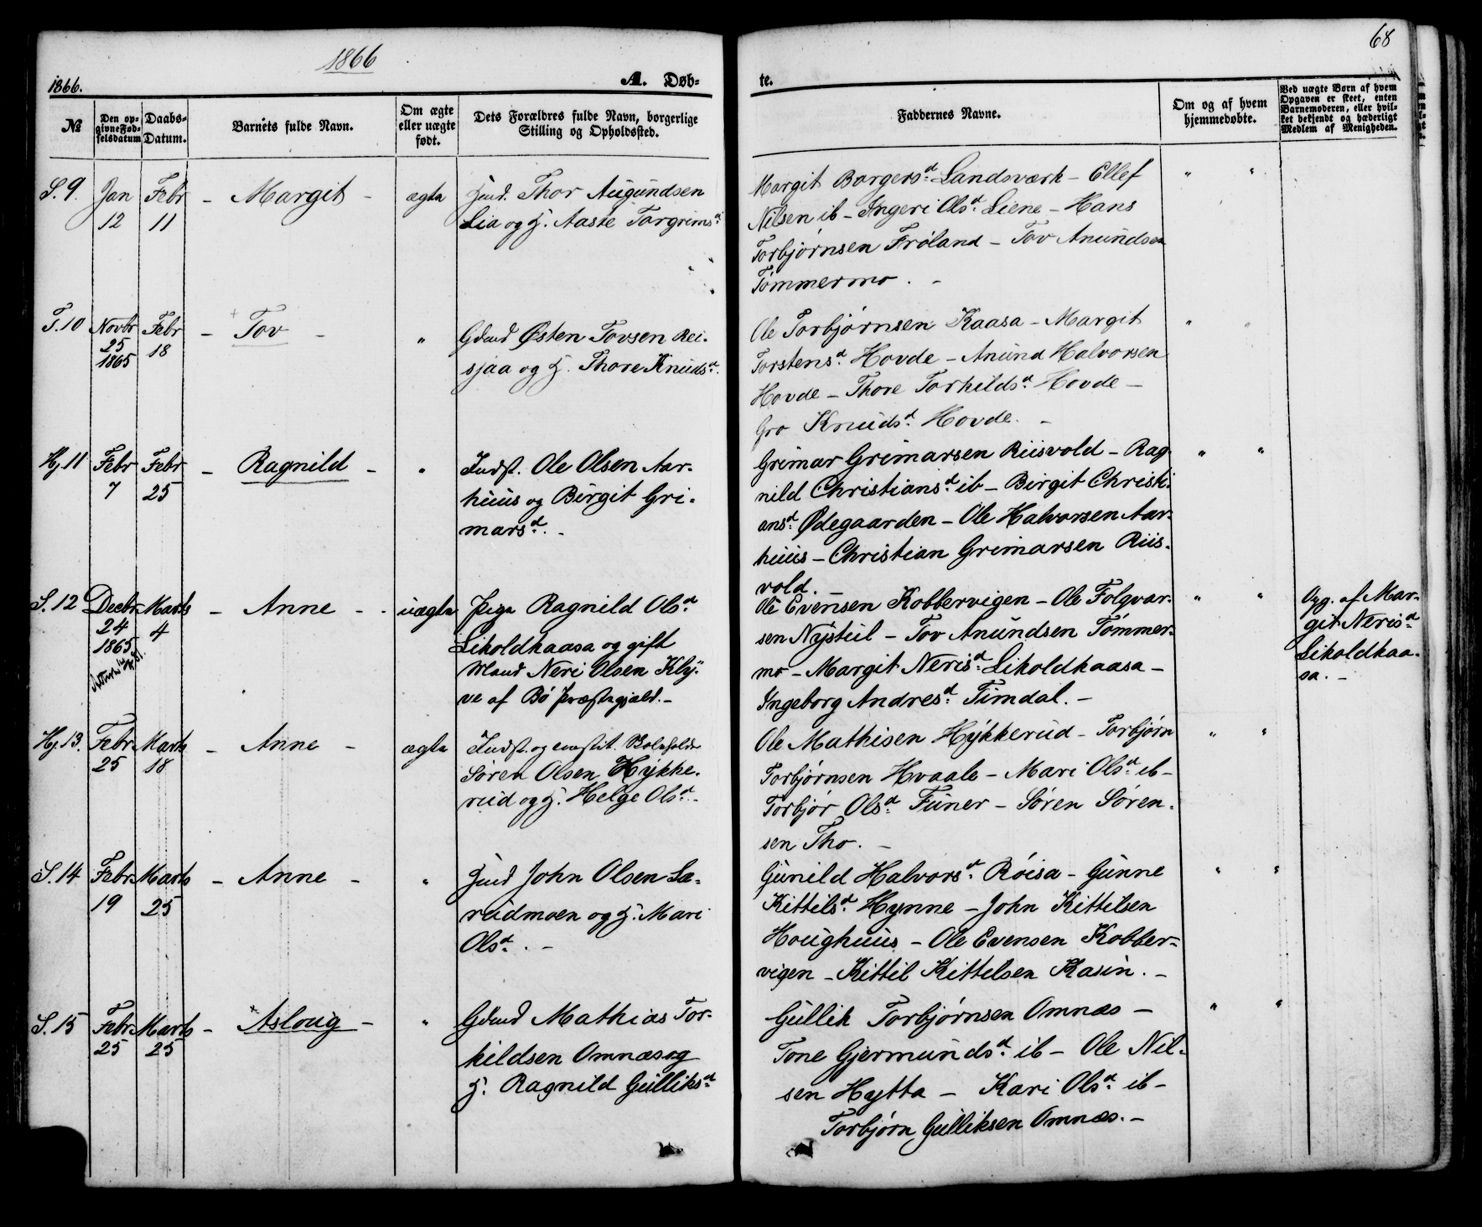 1866
68
1866.
A. Døb-
te.
№
Den op-
givne Fød-
selsdatum
Daabs-
Datum.
Barnets fulde Navn.
Om ægte
eller uægte
født.
Dets Forældres fulde Navn, borgerlige
Stilling og Opholdssted.
Faddernes Navne.
Om og af hvem
hjemmedøbte.
Ved uægte Børn af hvem
Opgaven er skeet, enten
Barnemoderen, eller hvil-
ket bekjendt og hæderligt
Medlem af Menigheden.
S. 9. Jan 12 Febr 11 - Margit - ægte
Thor Augundsen
Lia og H. Aaste Torgrimsd.
Margit Borgersd. Landsværk - Ellef
Nilsen ib - Ingeri Olsd. Liene - Hans
Torbjørnsen Frøland - Tov Anundsen
Tømmermo. -
" "
T. 10 Novbr 25 1865 Febr 18 - Tov - "
Gdmd Østen Tovsen Rei-
sjaa og H. Thore Knudsd.
Ole Torbjørnsen Kaasa - Margit
Torstensd. Hovde - Anund Halvorsen
Hovde - Thore Torkildsd. Hovde -
Gro Knudsd. Hovde. -
" "
Hj. 11 Febr 7 Febr 25 - Ragnild - "
Indst. Ole Olsen Aar-
huus og Birgit Gri-
marsd. -
Grimar Grimarsen Riisvold - Rag-
nild Christiansd. ib - Birgit Christi-
ansd. Ødegaarden - Ole Halvorsen Aar-
huus - Christian Grimarsen Riis-
vold. -
" "
S. 12 Decbr 24 1865 Marts 4 - Anne - uægte
Pige Ragnild Olsd
Likoldkaasa og gift
Mand Neri Olsen Kly-
ve af Bø Præstegjæld. -
Ole Evensen Kobbervigen - Ole Folqvar-
sen Nysteil - Tov Anundsen Tømmer-
mo - Margit Nerisd. Likoldkaasa -
Ingeborg Andresd. Timdal. -
" "
Opg. af Mar-
git Nerisd.
Likoldkaa-
sa. -
Hj. 13. Febr. 25 Marts 18 - Anne - ægte
Indst. og
Søren Olsen Hykke-
rud og H. Helge Olsd. -
Ole Mathisen Hykkerud - Torbjørn
Torbjørnsen Hvaale - Mari Olsd. ib -
Torbjør Olsd. Funer - Søren Søren-
sen Tho. -
" "
S. 14 Febr. 19 Marts 25 - Anne - "
John Olsen La-
rudmoen og H. Mari
Olsd. -
Gunild Halvorsd. Røisa - Gunne
Kittilsd. Hynne - John Kittilsen
Houghuus - Ole Evensen Kobber-
vigen - Kittil Kittelsen Kasin. -
" "
S. 15 Febr. 25 Marts 25 - Asloug - "
Gdmd Mathias Tor-
kildsen Omnæs og
H. Ragnild Gulliksd
Gullik Torbjørnsen Omnæs -
Tone Gjermundsd. ib - Ole Nil-
sen Hytta - Kari Olsd. ib -
Torbjørn Gulliksen Omnæs. -
" "